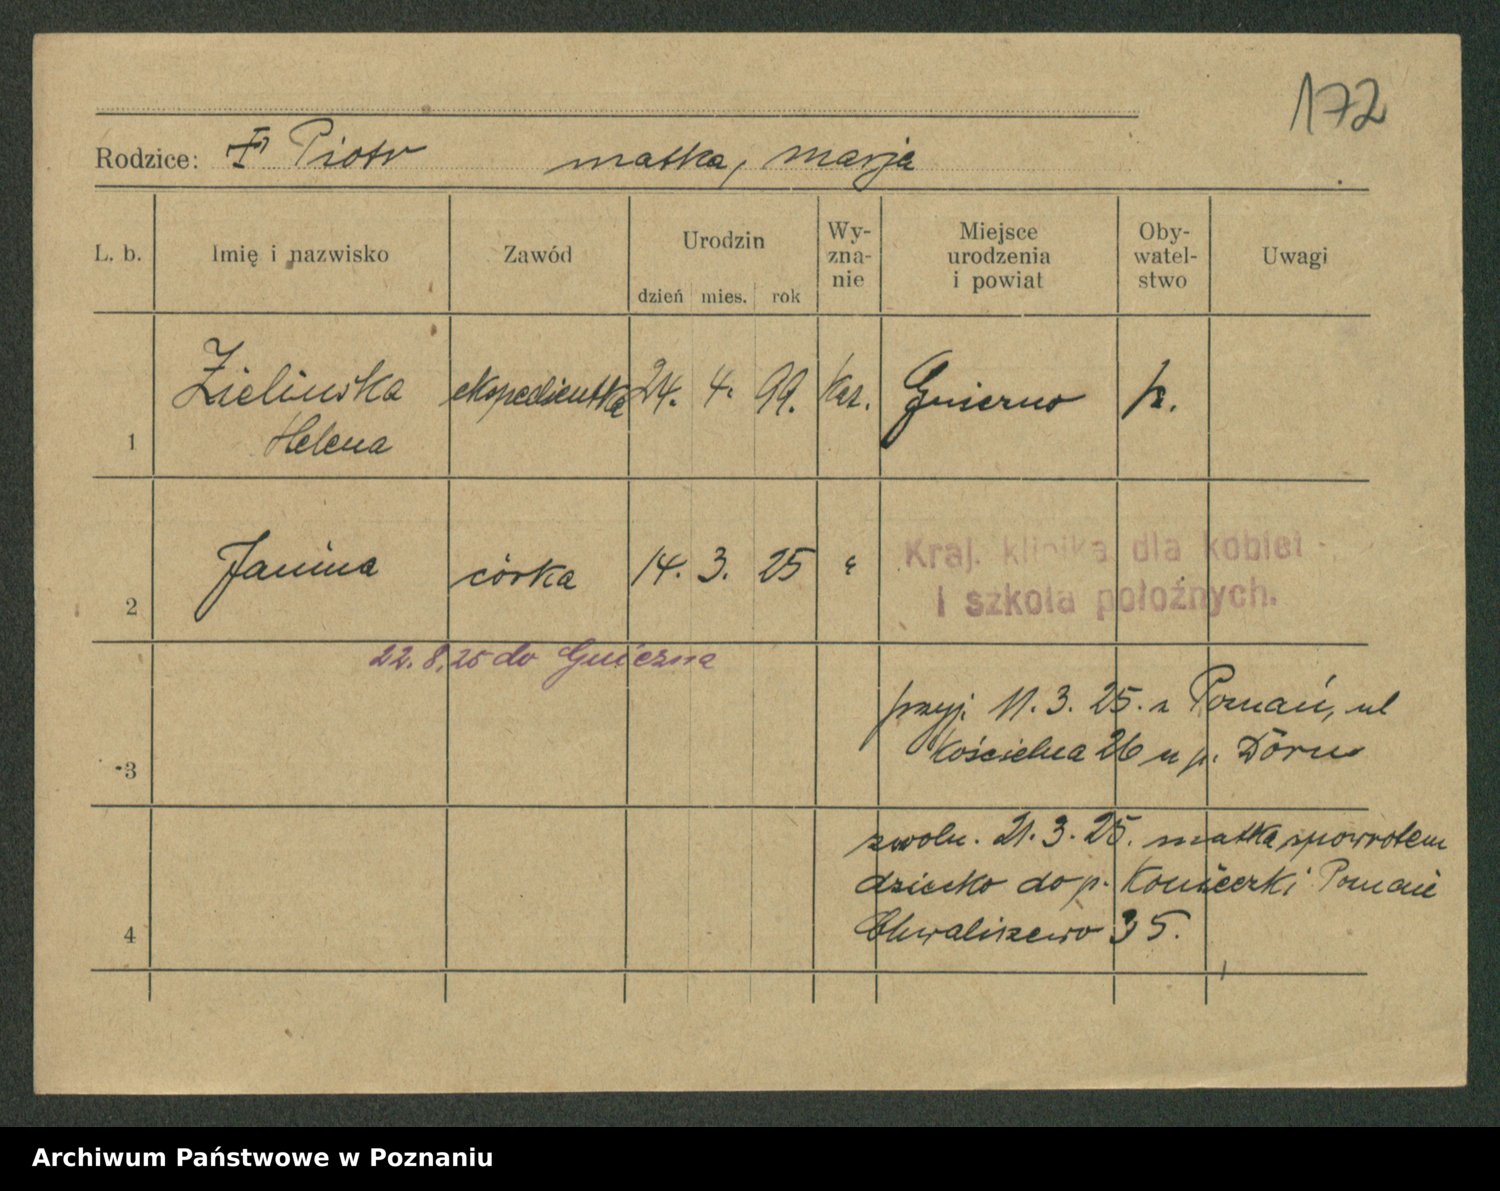 172
Rodzice: Piotr matka, Marja
L. b. Imię i nazwisko Zawód Urodzin dzień mies. rok Wy-zna-nie Miejsce urodzenia i powiat Oby-watel-stwo Uwagi
1 Zielińska Helena ekspedientka 24. 4. 99. kat. Gniezno p.
2 Janina córka 14. 3. 25 "
Kraj. klinika dla kobiet
i szkoła położnych.
22.8.25 do Gniezna
3
przyj. 11.3.25. z Poznań, ul
Kościelna 26 u p. Dörn
4
zwoln. 21.3.25. matka spowrotem
dziecko do p. Konieczki Poznań
Chwaliszewo 35.
Archiwum Państwowe w Poznaniu